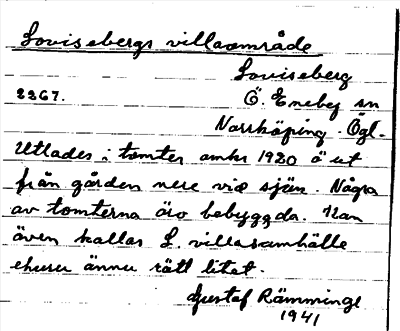 Lovisebergs villaområde
Loviseberg
2367. Ö. Eneby sn
Norrköping. Ögl.
Utlades i tomter omkr 1920 o ut
från gården nere vid sjön. Några
av tomterna äro bebyggda. Kan
även kallas L. villasamhälle
ehuru ännu rätt litet.
Gustaf Rämminge
1941